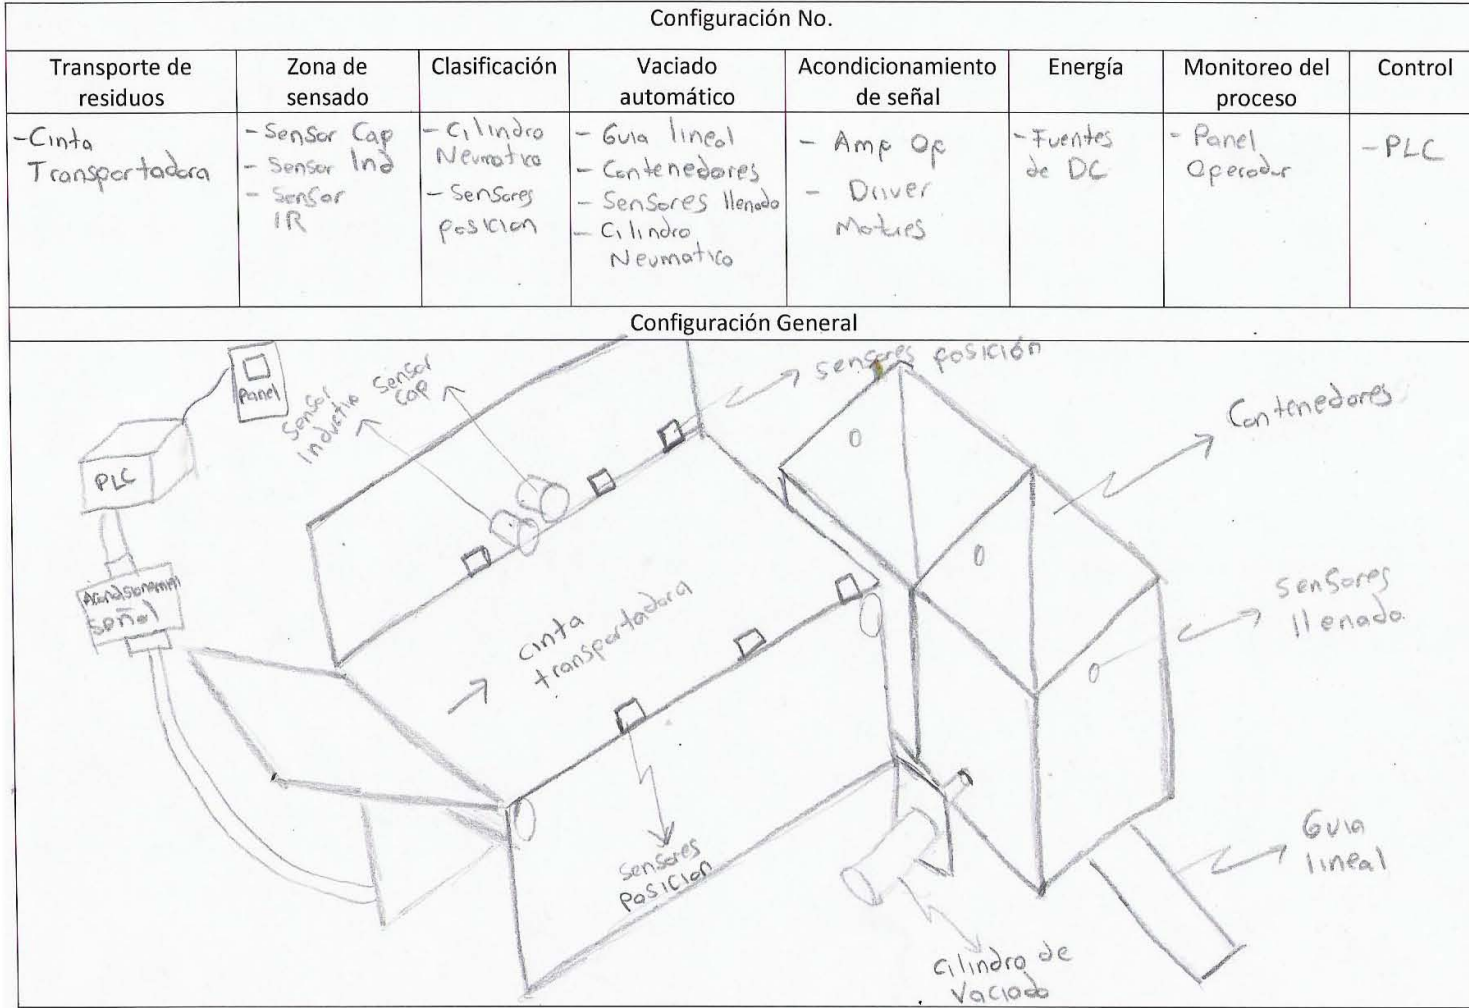 Configuración No.
Transporte de
residuos
Zona de
sensado
Clasificación
Vaciado
automático
Acondicionamiento
de señal
Energía
Monitoreo del
proceso
Control
-Cinta
Transportadora
- Sensor Cap
- Sensor Ind
- Sensor
IR
- Cilindro
Neumatico
- Sensores
posicion
- Guia lineal
- Contenedores
- Sensores llenado
- Cilindro
Neumatico
- Amp Op
- Driver
Motores
- Fuentes
de DC
- Panel
Operador
- PLC
Configuración General
Panel
Sensor
inductivo
Sensor
cap
sensores posición
Contenedores
PLC
señal
cinta
transportadora
sensores
llenado
sensores
posicion
Guia
lineal
cilindro de
vaciado